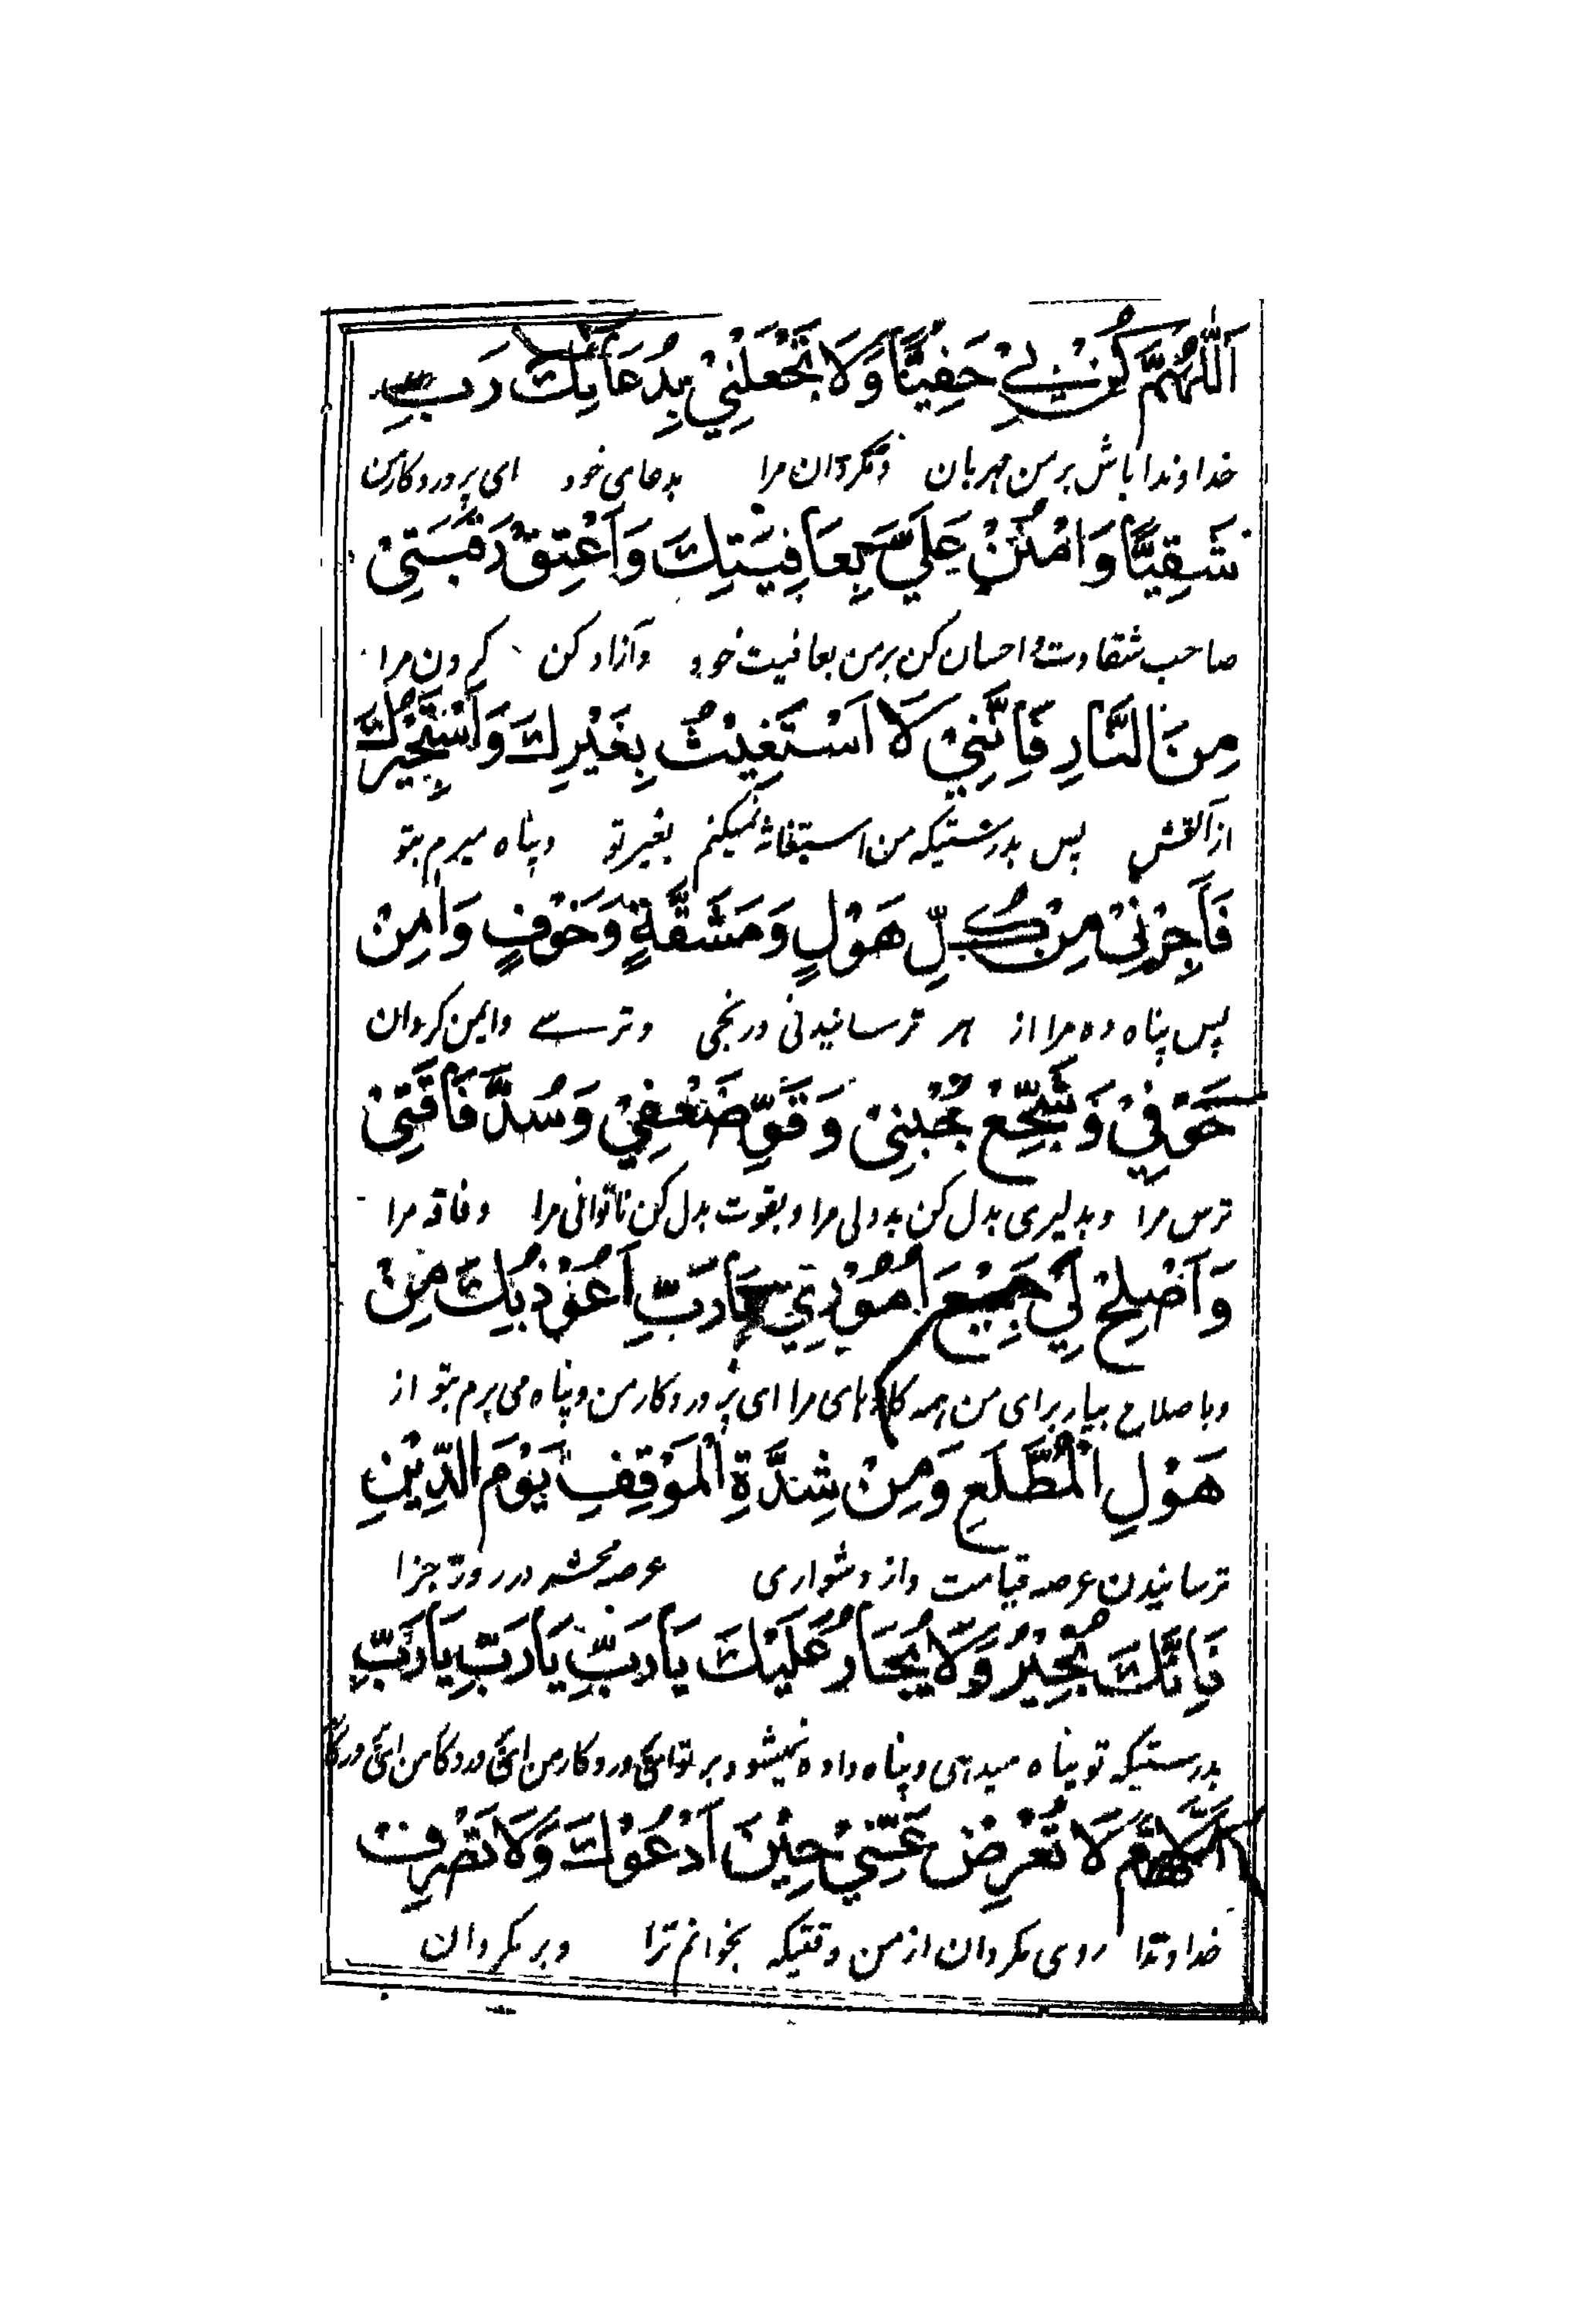 اَللّٰهُمَّ كُنْ لِيْ حَفِيًّا وَلَا تَجْعَلْنِيْ بِدُعَائِكَ رَبِّ
خداوندا باش بر من مهربان ومگردان مرا بدعای خود ای پروردکار من
شَقِيًّا وَامْنُنْ عَلَيَّ بِعَافِيَتِكَ وَاَعْتِقْ رَقَبَتِيْ
صاحب شقاوت و احسان کن بر من بعافیت خود وآزاد کن گردن مرا
مِنَ النَّارِ فَاِنَّنِيْ لَا اَسْتَغِيْثُ بِغَيْرِكَ وَاَسْتَجِيْرُكَ
از آتش پس بدرستیکه من استغاثه نمیکنم بغیر تو وپناه میبرم بتو
فَاَجِرْنِيْ مِنْ كُلِّ هَوْلٍ وَمَشَقَّةٍ وَخَوْفٍ وَاٰمِنْ
پس پناه ده مرا از هر ترسانیدنی ورنجی وترسے وایمن گردان
خَوْفِيْ وَشَجِّعْ جُبْنِيْ وَقَوِّ ضَعْفِيْ وَسُدَّ فَاقَتِيْ
ترس مرا وبدلیری بدل کن بددلی مرا وبقوت بدل کن ناتوانی مرا وفاقه مرا
وَاَصْلِحْ لِيْ جَمِيْعَ اُمُوْرِيْ يَارَبِّ اَعُوْذُ بِكَ مِنْ
وباصلاح بیار برای من همه کارهای مرا ای پروردکار من وپناه می برم بتو از
هَوْلِ الْمُطَّلَعِ وَمِنْ شِدَّةِ الْمَوْقِفِ يَوْمَ الدِّيْنِ
ترسانیدن عرصه قیامت واز دشواری عرصه محشر در روز جزا
فَاِنَّكَ تُجِيْرُ وَلَا يُجَارُ عَلَيْكَ يَارَبِّ يَارَبِّ يَارَبِّ
بدرستیکه تو پناه میدهی وپناه داده نمیشود بر تو ای پروردکار من ای پروردکار من ای
اَللّٰهُمَّ لَا تُعْرِضْ عَنِّيْ حِيْنَ اَدْعُوْكَ وَلَا تَصْرِفْ
خداوندا روی مگردان از من وقتیکه بخوانم ترا وبر مگردان